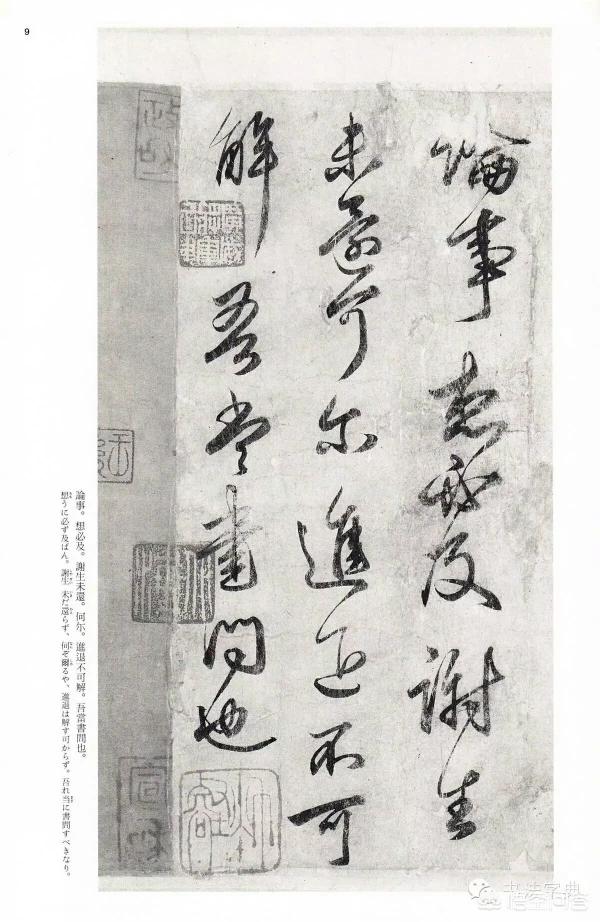 9
論事想必及謝生
未還可尔進退不可
解吾當書問也
論事。想必及。謝生未還。何尓。進退不可解。吾當書問也。
想うに必ず及ばん。謝生 未だ還らず、何ぞ爾るや、進退は解す可からず。吾れ当に書問すべきなり。
书法字典